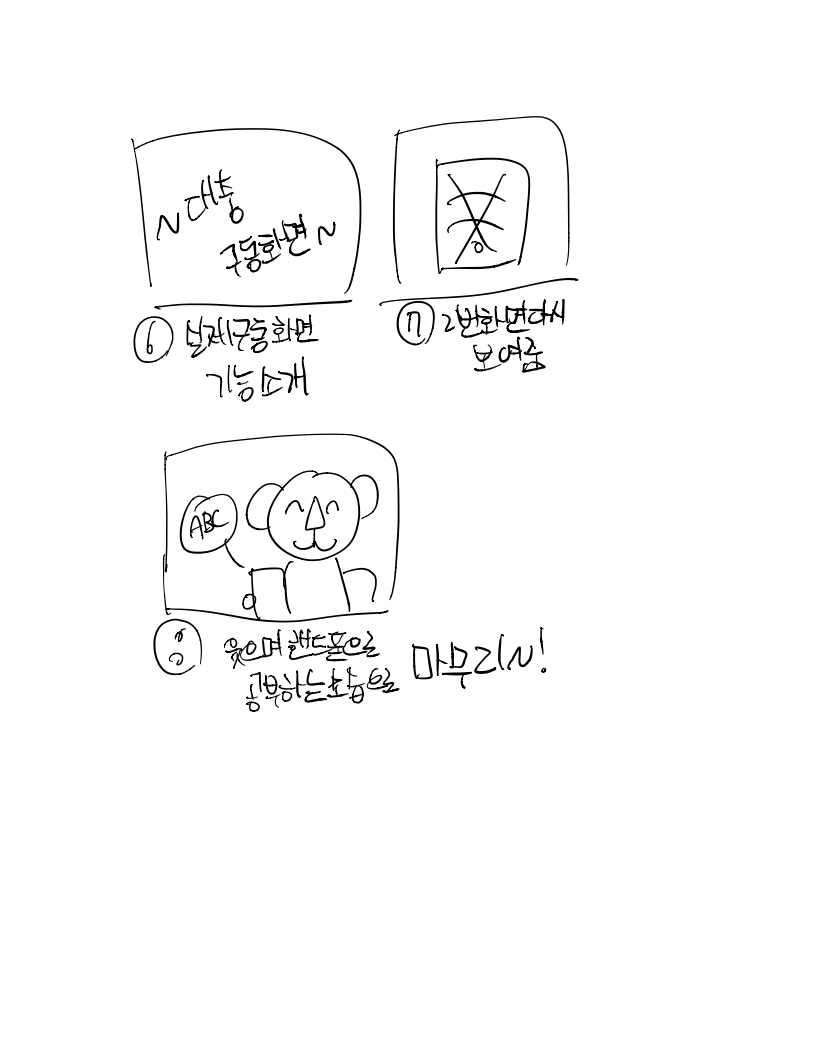 ~대충
구동화면~
⑥ 실제구동화면
기능소개
⑦ 2번화면다시
보여줌
ABC
⑧ 웃으며 핸드폰으로
공부하는모습으로
마무리~!